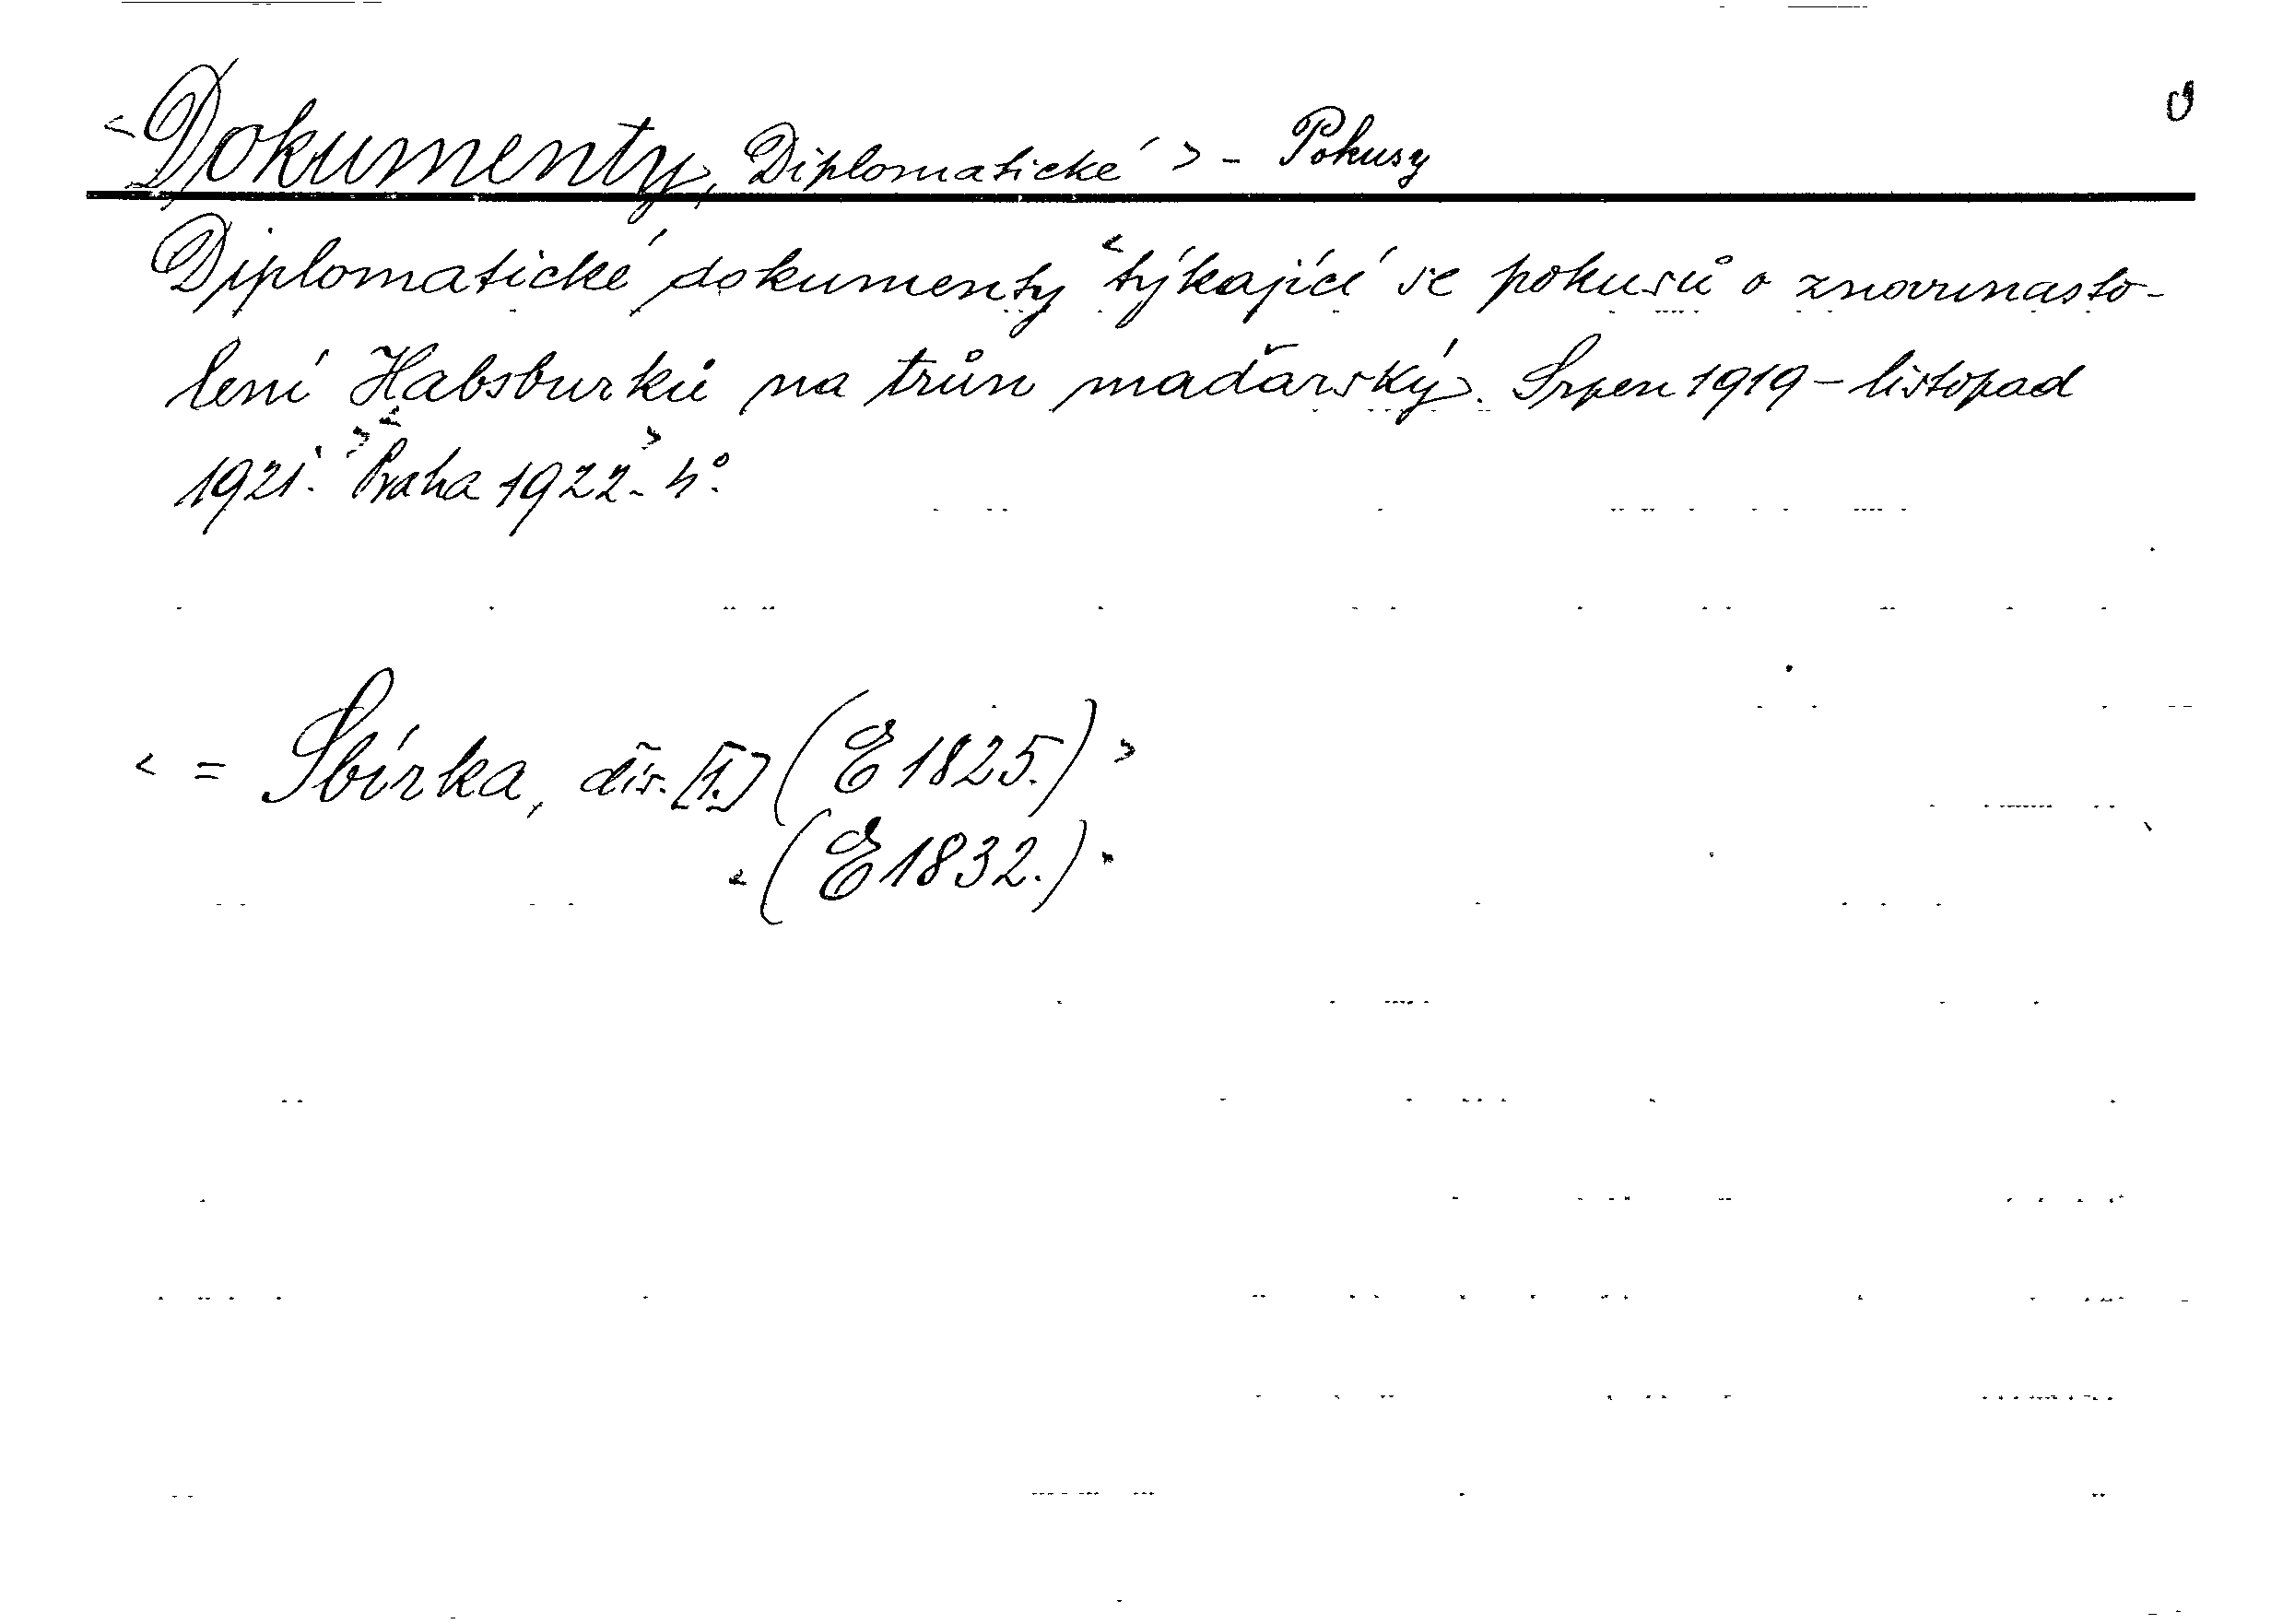 <Dokumenty, Diplomatické> - Pokusy
Diplomatické dokumenty <týkající se pokusů o znovunasto-
lení Habsburků na trůn maďarský. Srpen 1919 – listopad
1921.> <Praha 1922.> 4°.
< = Sbírka, dir. [1.] (E 1825.) >
< (E 1832.) >